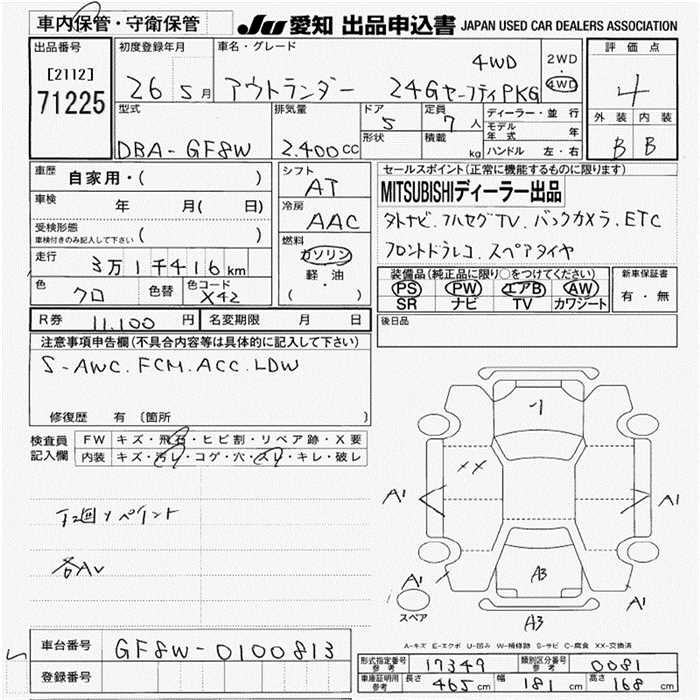 車内保管・守衛保管
JU 愛知 出品申込書 JAPAN USED CAR DEALERS ASSOCIATION
出品番号
[2112]
71225
初度登録年月
26 5月
車名・グレード
4WD
アウトランダー 24GセーフティPKG
2WD
・
4WD
評価点
4
外装 内装
B B
型式
DBA-GF8W
排気量
2.400cc
ドア
5
形状
定員
7人
積載
kg
ディーラー・並行
モデル年式 年
ハンドル 左・右
車歴
自家用・( )
車検
年 月( 日)
受検形態
車検付きのみ記入して下さい ( )
走行
3万1千416km
色
クロ
色替
色コード
X42
シフト
AT
冷房
AAC
燃料
ガソリン
軽・油
( ・ )
セールスポイント(正常に機能するものに限ります)
MITSUBISHIディーラー出品
外ナビ.フルセグTV.バックカメラ.ETC
フロントドラレコ.スペアタイヤ
装備品(純正品に限り〇をつけてください)
PS PW エアB AW
SR ナビ TV カワシート
新車保証書
有・無
R券 11,100円
名変期限 月 日
後日品
注意事項申告欄(不具合内容等は具体的に記入して下さい)
S-AWC.FCM.ACC.LDW
修復歴 有〔箇所 〕
検査員
記入欄
FW キズ・飛石・ヒビ割・リペア跡・X要
内装 キズ・汚レ・コゲ・穴・スリ・キレ・破レ
各AV
XX
A1
A1
A1
A1
A3
A3
スペア
A-キズ E-エクボ U-凹み W-補修跡 S-サビ C-腐食 XX-交換済
車台番号 GF8W-0100813
登録番号
形式指定番号
参考
17349
類別区分番号
参考
0081
車庫証明用
参考
長さ 465cm 幅 181cm 高さ 168cm